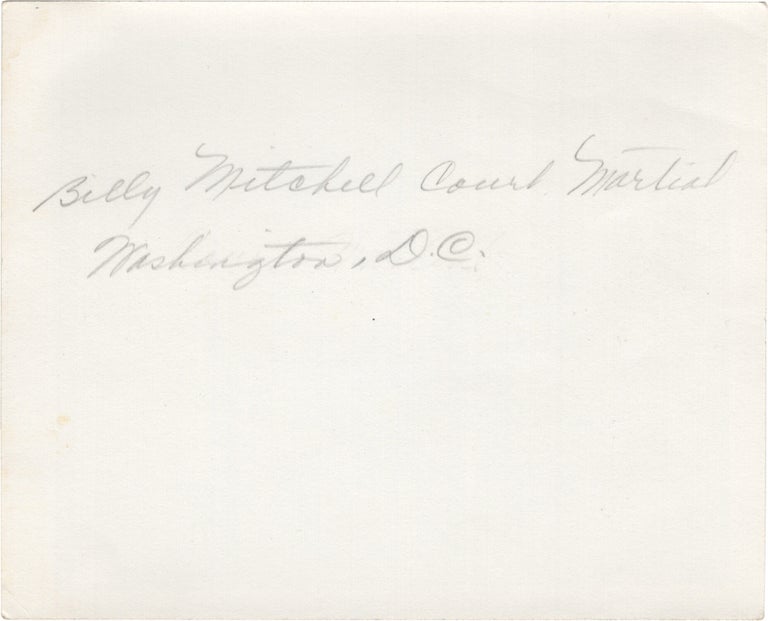 Billy Mitchell Court Martial
Washington, D.C.